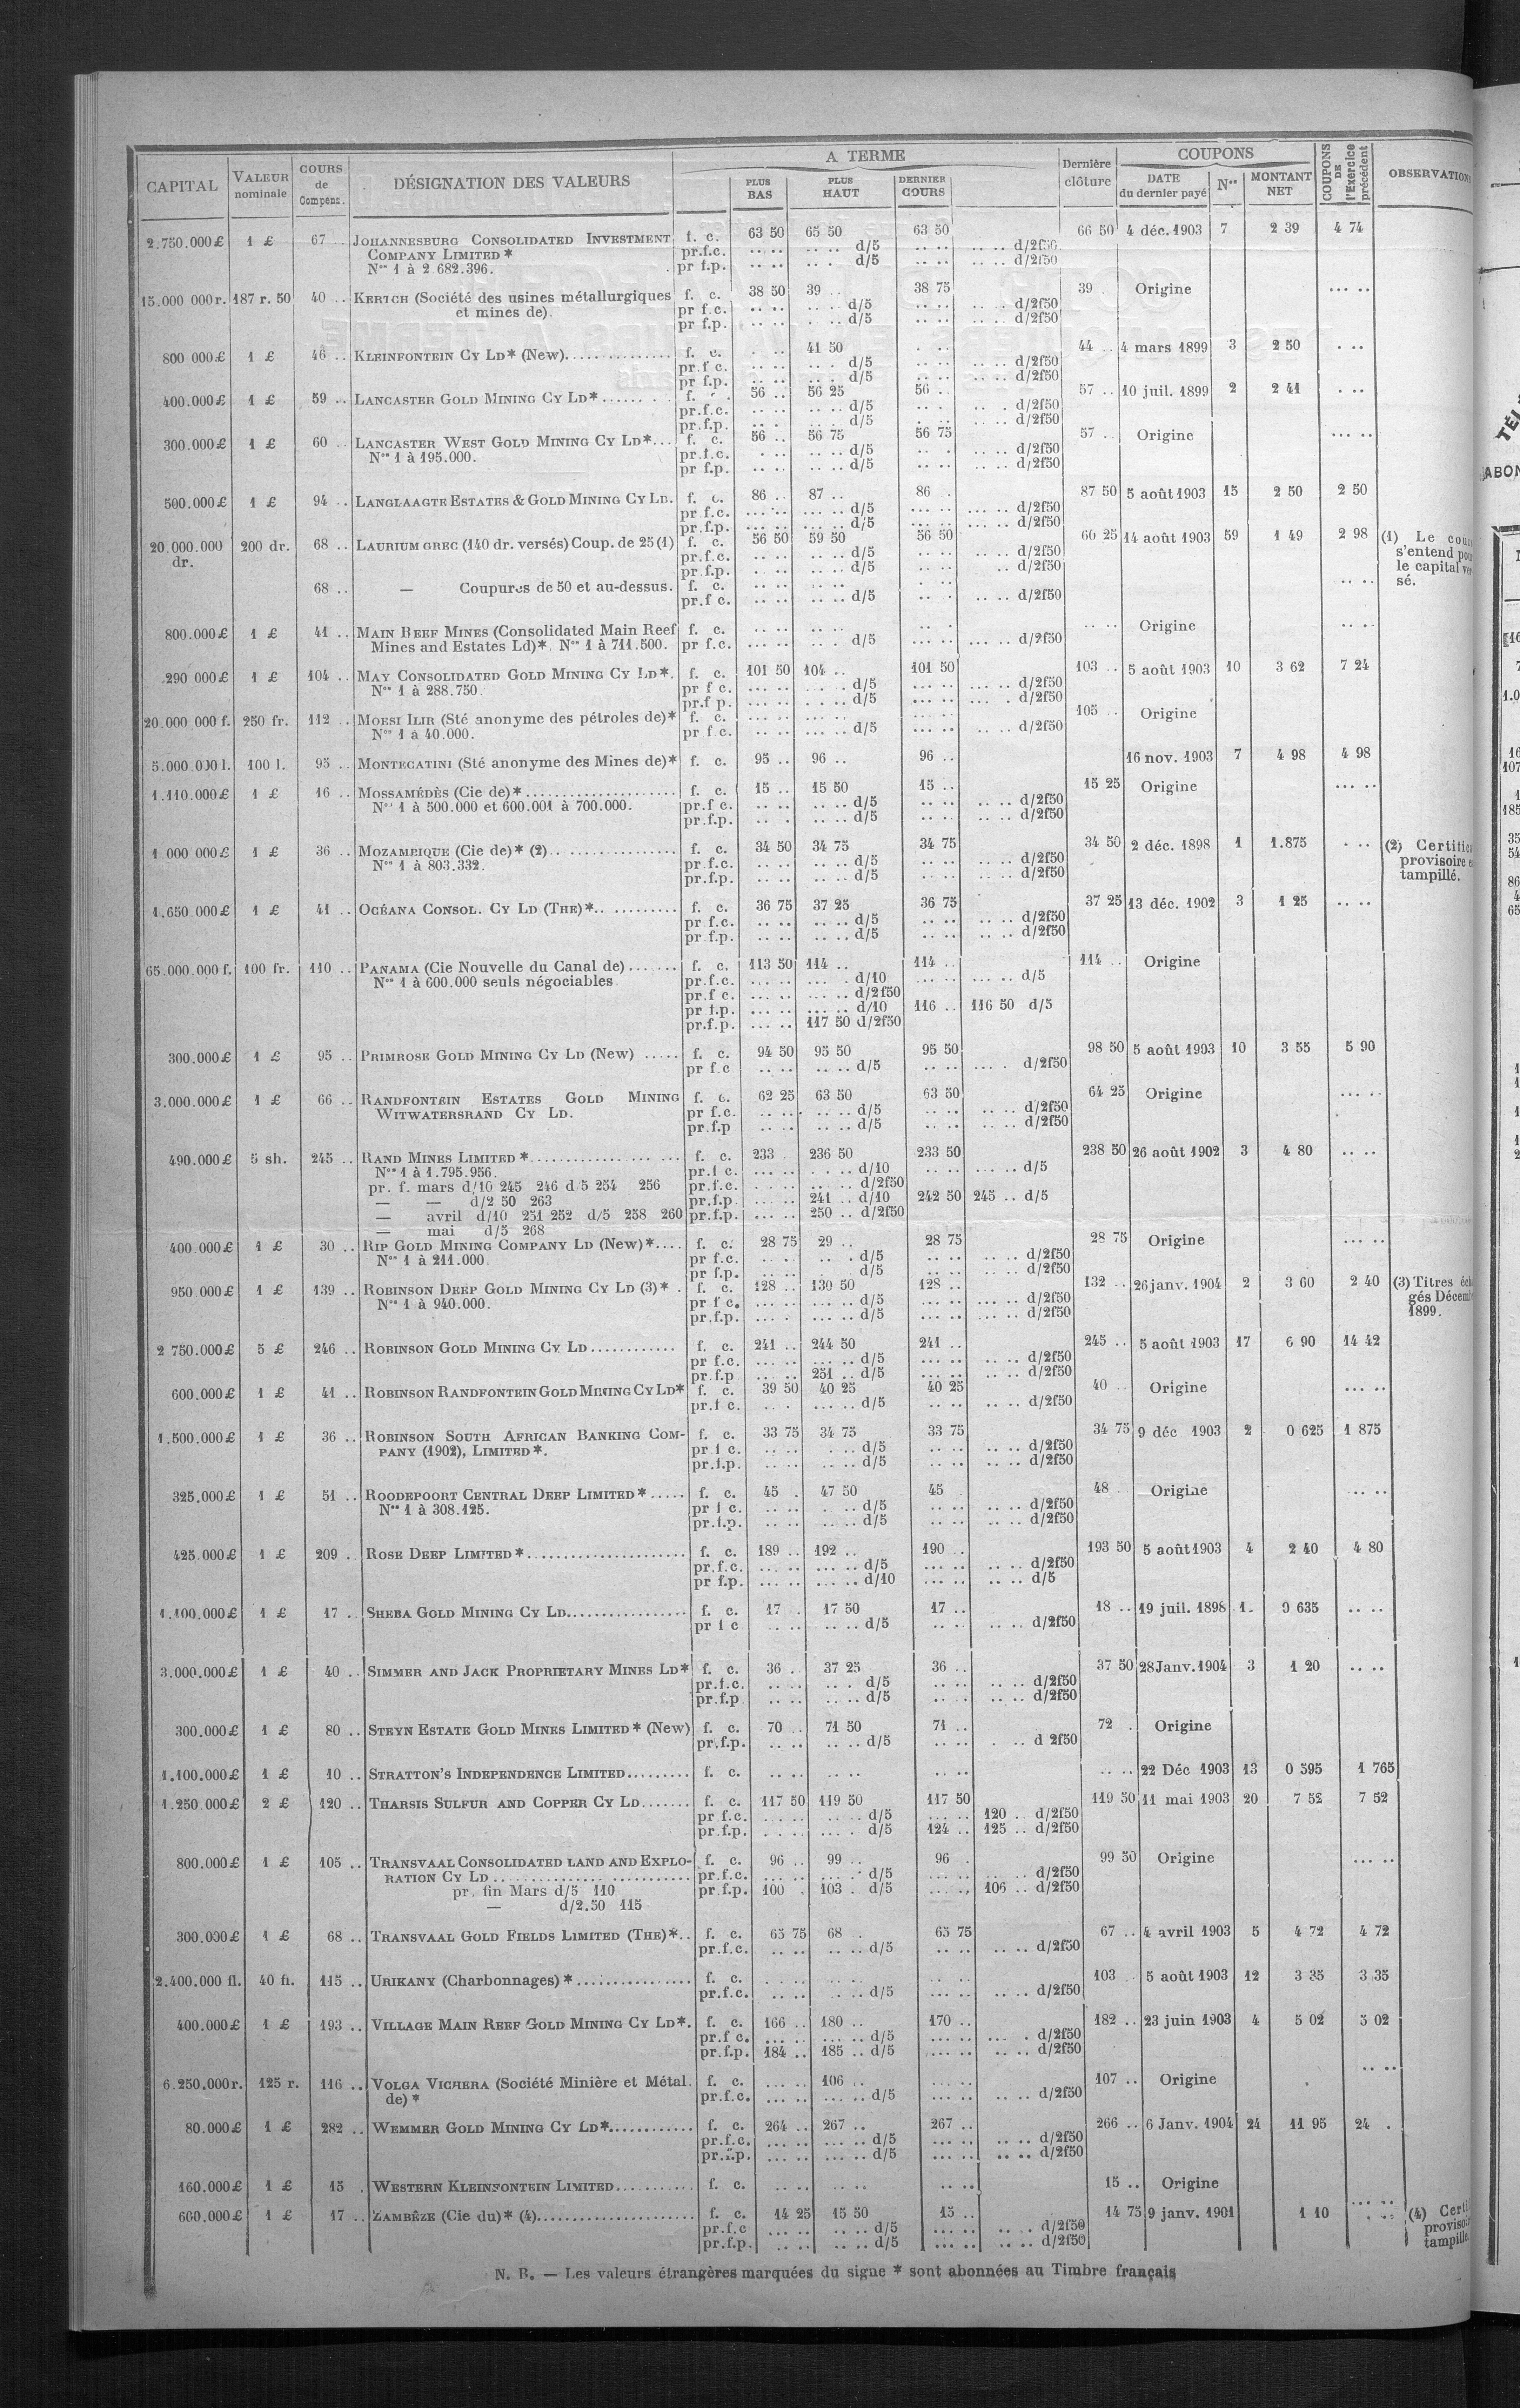 CAPITAL | VALEUR nominale | COURS de Compens. | DÉSIGNATION DES VALEURS | A TERME | PLUS BAS | PLUS HAUT | DERNIER COURS | Dernière clôture | COUPONS | DATE du dernier payé | Nos | MONTANT NET | COUPONS DE l'Exercice précédent | OBSERVATION
2.750.000 £ 1 £ 67 .. JOHANNESBURG CONSOLIDATED INVESTMENT f. c. 63 50 65 50 63 50 66 50 4 déc. 1903 7 2 39 4 74
COMPANY LIMITED * pr.f.c. .. .. d/5 .. .. d/2f50
Nos 1 à 2 682.396. pr f.p. .. .. d/5 .. .. d/2f50
15.000 000 r. 187 r. 50 40 .. KERTCH (Société des usines métallurgiques f. c. 38 50 39 .. 38 75 39 . Origine ... ..
et mines de). pr f.c. .. .. d/5 .. .. d/2f50
pr f.p. .. .. d/5 .. .. d/2f50
800 000 £ 1 £ 46 .. KLEINFONTEIN CY LD* (New) f. c. . .. 41 50 . .. 44 .. 4 mars 1899 3 2 50 . ..
pr.f c. .. .. d/5 .. .. d/2f50
pr f.p. .. .. d/5 .. .. d/2f50
400.000 £ 1 £ 59 .. LANCASTER GOLD MINING CY LD* f. c. 56 .. 56 25 56 .. 57 .. 10 juil. 1899 2 2 41 . ..
pr.f.c. .. .. d/5 .. . d/2f50
pr.f.p. .. .. d/5 .. .. d/2f50
300.000 £ 1 £ 60 .. LANCASTER WEST GOLD MINING CY LD* f. c. 56 .. 56 75 56 75 57 .. Origine ... ..
Nos 1 à 195.000. pr.f.c. .. .. d/5 .. .. d/2f50
pr f.p. .. .. d/5 .. .. d/2f50
500.000 £ 1 £ 94 .. LANGLAAGTE ESTATES & GOLD MINING CY LD. f. c. 86 .. 87 .. 86 . 87 50 5 août 1903 15 2 50 2 50
pr f.c. ... .. d/5 ... .. d/2f50
pr.f.p. ... .. d/5 ... .. d/2f50
20.000.000 dr. 200 dr. 68 .. LAURIUM GREC (140 dr. versés) Coup. de 25 (1) f. c. 56 50 59 50 56 50 60 25 14 août 1903 59 1 49 2 98 (1) Le cours
pr.f.c. .. .. d/5 .. .. d/2f50 s'entend pour
pr.f.p. .. .. d/5 .. .. d/2f50 le capital ver-
68 .. — Coupures de 50 et au-dessus. f. c. .. .. .. .. sé.
pr.f c. .. .. d/5 .. .. d/2f50
800.000 £ 1 £ 41 .. MAIN REEF MINES (Consolidated Main Reef f. c. .. .. .. .. Origine .. ..
Mines and Estates Ld)*. Nos 1 à 711.500. pr f.c. ... .. d/5 ... .. d/2f50
290 000 £ 1 £ 104 .. MAY CONSOLIDATED GOLD MINING CY LD*. f. c. 101 50 104 .. 101 50 103 .. 5 août 1903 10 3 62 7 24
Nos 1 à 288.750. pr f c. ... .. d/5 ... .. d/2f50
pr.f p. ... .. d/5 ... .. d/2f50
20.000 000 f. 250 fr. 112 .. MOESI ILIR (Sté anonyme des pétroles de)* f. c. ... .. ... .. 105 .. Origine
Nos 1 à 40.000. pr f.c. ... .. d/5 ... .. d/2f50
5.000.000 l. 100 l. 95 .. MONTECATINI (Sté anonyme des Mines de)* f. c. 95 .. 96 .. 96 .. 16 nov. 1903 7 4 98 4 98
1.110.000 £ 1 £ 16 .. MOSSAMÉDÈS (Cie de)* f. c. 15 .. 15 50 15 .. 15 25 Origine ... ..
Nos 1 à 500.000 et 600.001 à 700.000. pr.f c. .. .. d/5 .. .. d/2f50
pr.f.p. .. .. d/5 .. .. d/2f50
1 000 000 £ 1 £ 36 .. MOZAMBIQUE (Cie de)* (2) f. c. 34 50 34 75 34 75 34 50 2 déc. 1898 1 1.875 . .. (2) Certificat
Nos 1 à 803.332. pr f.c. .. .. d/5 .. .. d/2f50 provisoire es-
pr.f.p. .. .. d/5 .. .. d/2f50 tampillé.
1.650 000 £ 1 £ 41 .. OCÉANA CONSOL. CY LD (THE)* f. c. 36 75 37 25 36 75 37 25 13 déc. 1902 3 1 25 .. ..
pr f.c. .. .. d/5 .. .. d/2f50
pr f.p. .. .. d/5 .. .. d/2f50
65.000.000 f. 100 fr. 110 .. PANAMA (Cie Nouvelle du Canal de) f. c. 113 50 114 .. 114 .. 114 .. Origine
Nos 1 à 600.000 seuls négociables pr.f.c. ... .. d/10 ... .. d/5
pr.f c. ... .. d/2f50
pr f.p. ... .. d/10 116 .. 116 50 d/5
pr.f.p. ... .. 117 50 d/2f50
300.000 £ 1 £ 95 .. PRIMROSE GOLD MINING CY LD (New) f. c. 94 50 95 50 95 50 98 50 5 août 1903 10 3 55 5 90
pr f.c .. .. d/5 .. .. d/2f50
3.000.000 £ 1 £ 66 .. RANDFONTEIN ESTATES GOLD MINING f. c. 62 25 63 50 63 50 64 25 Origine ... ..
WITWATERSRAND CY LD. pr f.c. .. .. d/5 .. .. d/2f50
pr.f.p .. .. d/5 .. .. d/2f50
490.000 £ 5 sh. 245 .. RAND MINES LIMITED * f. c. 233 . 236 50 233 50 238 50 26 août 1902 3 4 80 .. ..
Nos 1 à 1.795.956. pr.f c. ... .. d/10 .. .. d/5
pr. f. mars d/10 245 246 d/5 254 256 pr.f.c. ... .. d/2f50
— — d/2 50 263 pr.f.p. ... .. 241 .. d/10 242 50 245 .. d/5
— avril d/10 251 252 d/5 258 260 pr.f.p. ... .. 250 .. d/2f50
— mai d/5 268
400 000 £ 1 £ 30 .. RIP GOLD MINING COMPANY LD (New)* f. c. 28 75 29 .. 28 75 28 75 Origine ... ..
Nos 1 à 211.000 pr f.c. .. .. d/5 .. .. d/2f50
pr f.p. .. .. d/5 .. .. d/2f50
950 000 £ 1 £ 139 .. ROBINSON DEEP GOLD MINING CY LD (3)* f. c. 128 .. 130 50 128 .. 132 .. 26 janv. 1904 2 3 60 2 40 (3) Titres échan-
Nos 1 à 940.000. pr f c. ... .. d/5 ... .. d/2f50 gés Décembre
pr.f.p. ... .. d/5 ... .. d/2f50 1899.
2 750.000 £ 5 £ 246 .. ROBINSON GOLD MINING CY LD f. c. 241 .. 244 50 241 .. 245 .. 5 août 1903 17 6 90 14 42
pr f.c. ... .. d/5 ... .. d/2f50
pr.f.p ... .. 251 .. d/5 ... .. d/2f50
600.000 £ 1 £ 41 .. ROBINSON RANDFONTEIN GOLD MINING CY LD* f. c. 39 50 40 25 40 25 40 .. Origine ... ..
pr.f c. .. . d/5 .. .. d/2f50
1.500.000 £ 1 £ 36 .. ROBINSON SOUTH AFRICAN BANKING COM- f. c. 33 75 34 75 33 75 34 75 9 déc 1903 2 0 625 1 875
PANY (1902), LIMITED *. pr f c. .. .. d/5 .. .. d/2f50
pr.f.p. .. .. d/5 .. .. d/2f50
325.000 £ 1 £ 51 .. ROODEPOORT CENTRAL DEEP LIMITED * f. c. 45 . 47 50 45 48 . Origine .. ..
Nos 1 à 308.125. pr f c. .. .. d/5 .. .. d/2f50
pr.f.p. .. .. d/5 .. .. d/2f50
425.000 £ 1 £ 209 .. ROSE DEEP LIMITED * f. c. 189 .. 192 .. 190 .. 193 50 5 août 1903 4 2 40 4 80
pr.f.c. ... .. d/5 ... .. d/2f50
pr f.p. ... .. d/10 ... .. d/5
1.100.000 £ 1 £ 17 .. SHEBA GOLD MINING CY LD f. c. 17 . 17 50 17 .. 18 .. 19 juil. 1898 1. 0 635 .. ..
pr f c .. .. d/5 .. .. d/2f50
3.000.000 £ 1 £ 40 .. SIMMER AND JACK PROPRIETARY MINES LD* f. c. 36 . 37 25 36 .. 37 50 28 Janv. 1904 3 1 20 .. ..
pr.f.c. .. .. d/5 .. .. d/2f50
pr.f.p .. .. d/5 .. .. d/2f50
300.000 £ 1 £ 80 .. STEYN ESTATE GOLD MINES LIMITED * (New) f. c. 70 .. 71 50 71 .. 72 . Origine
pr.f.p. .. .. d/5 .. .. d 2f50
1.100.000 £ 1 £ 10 .. STRATTON'S INDEPENDENCE LIMITED f. c. .. .. .. .. 22 Déc 1903 13 0 595 1 765
1.250 000 £ 2 £ 120 .. THARSIS SULFUR AND COPPER CY LD f. c. 117 50 119 50 117 50 119 50 11 mai 1903 20 7 52 7 52
pr f.c. ... .. d/5 ... .. 120 .. d/2f50
pr.f.p. ... .. d/5 124 .. 125 .. d/2f50
800.000 £ 1 £ 105 .. TRANSVAAL CONSOLIDATED LAND AND EXPLO- f. c. 96 .. 99 .. 96 . 99 50 Origine ... ..
RATION CY LD pr.f.c. ... .. d/5 ... .. d/2f50
pr. fin Mars d/5 110 pr f.p. 100 . 103 . d/5 ... .. 106 .. d/2f50
— d/2.50 115
300.000 £ 1 £ 68 .. TRANSVAAL GOLD FIELDS LIMITED (THE)* f. c. 65 75 68 .. 65 75 67 .. 4 avril 1903 5 4 72 4 72
pr.f.c. .. .. d/5 .. .. d/2f50
2.400.000 fl. 40 fl. 115 .. URIKANY (Charbonnages) * f. c. .. .. .. .. 103 .. 5 août 1903 12 3 35 3 35
pr.f.c. .. .. d/5 ... .. d/2f50
400.000 £ 1 £ 193 .. VILLAGE MAIN REEF GOLD MINING CY LD*. f. c. 166 .. 180 .. 170 .. 182 .. 23 juin 1903 4 5 02 5 02
pr.f c. ... .. d/5 ... .. d/2f50
pr.f.p. 184 .. 185 .. d/5 ... .. d/2f50
6.250.000 r. 125 r. 116 .. VOLGA VICHERA (Société Minière et Métal. f. c. ... .. 106 .. ... .. 107 .. Origine .. ..
de) * pr.f.c. ... .. d/5 ... .. d/2f50
80.000 £ 1 £ 282 .. WEMMER GOLD MINING CY LD* f. c. 264 .. 267 .. 267 .. 266 .. 6 Janv. 1904 24 11 95 24 .
pr.f.c. ... .. d/5 ... .. d/2f50
pr.f.p. ... .. d/5 ... .. d/2f50
160.000 £ 1 £ 15 . WESTERN KLEINFONTEIN LIMITED f. c. .. .. .. .. 15 .. Origine
600.000 £ 1 £ 17 .. ZAMBÈZE (Cie du)* (4) f. c. 14 25 15 50 15 .. 14 75 9 janv. 1901 1 10 . .. (4) Certi
pr.f.c ... .. d/5 ... .. d/2f50 proviso
pr.f.p. .. .. d/5 ... .. d/2f50 tampillé
N. B. — Les valeurs étrangères marquées du signe * sont abonnées au Timbre français